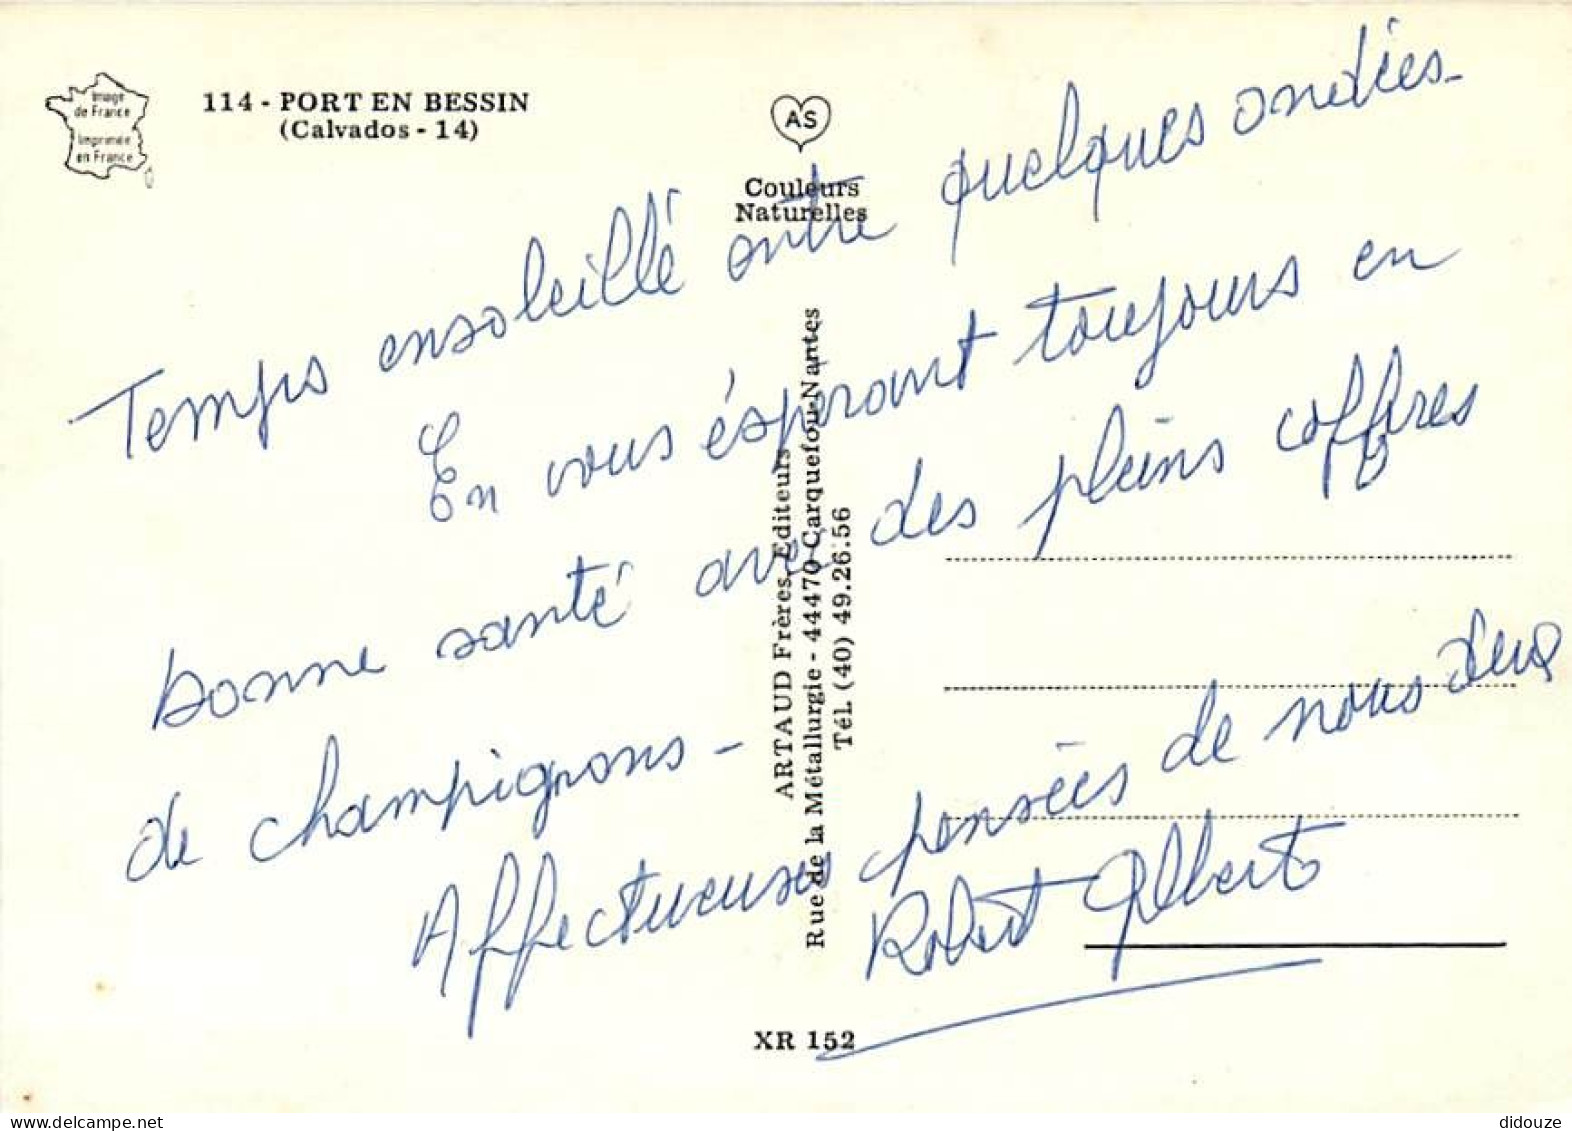 Image
de France
Imprimée
en France
114 - PORT EN BESSIN
(Calvados - 14)
AS
Couleurs
Naturelles
Temps ensoleillé entre quelques ondées-
En vous éspérant toujours en
bonne santé avec des pleins coffres
de champignons -
Affectueuses pensées de nous deux
Robert Gilberte
ARTAUD Frères, Editeurs
Rue de la Métallurgie - 44470 Carquefou-Nantes
Tél. (40) 49.26.56
XR 152
delcampe.net
didouze